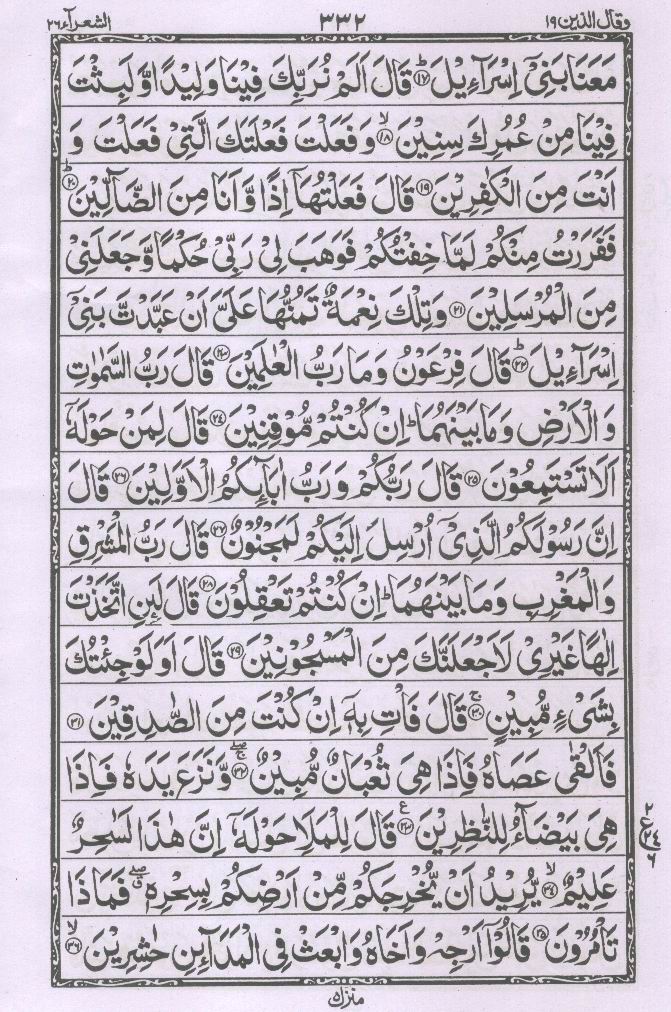 وقال الذین ۱۹ ۳۳۲ الشعرآء ۲۶
مَعَنَا بَنِیْۤ اِسْرَآءِیْلَ ؕ﴿۱۷﴾ قَالَ اَلَمْ نُرَبِّكَ فِیْنَا وَلِیْدًا وَّ لَبِثْتَ
فِیْنَا مِنْ عُمُرِكَ سِنِیْنَ ۙ﴿۱۸﴾ وَ فَعَلْتَ فَعْلَتَكَ الَّتِیْ فَعَلْتَ وَ
اَنْتَ مِنَ الْكٰفِرِیْنَ ﴿۱۹﴾ قَالَ فَعَلْتُهَاۤ اِذًا وَّ اَنَا مِنَ الضَّآلِّیْنَ ؕ﴿۲۰﴾
فَفَرَرْتُ مِنْكُمْ لَمَّا خِفْتُكُمْ فَوَهَبَ لِیْ رَبِّیْ حُكْمًا وَّ جَعَلَنِیْ
مِنَ الْمُرْسَلِیْنَ ﴿۲۱﴾ وَ تِلْكَ نِعْمَةٌ تَمُنُّهَا عَلَیَّ اَنْ عَبَّدْتَّ بَنِیْۤ
اِسْرَآءِیْلَ ؕ﴿۲۲﴾ قَالَ فِرْعَوْنُ وَ مَا رَبُّ الْعٰلَمِیْنَ ﴿۲۳﴾ قَالَ رَبُّ السَّمٰوٰتِ
وَ الْاَرْضِ وَ مَا بَیْنَهُمَا ؕ اِنْ كُنْتُمْ مُّوْقِنِیْنَ ﴿۲۴﴾ قَالَ لِمَنْ حَوْلَهٗۤ
اَلَا تَسْتَمِعُوْنَ ﴿۲۵﴾ قَالَ رَبُّكُمْ وَ رَبُّ اٰبَآئِكُمُ الْاَوَّلِیْنَ ﴿۲۶﴾ قَالَ
اِنَّ رَسُوْلَكُمُ الَّذِیْۤ اُرْسِلَ اِلَیْكُمْ لَمَجْنُوْنٌ ﴿۲۷﴾ قَالَ رَبُّ الْمَشْرِقِ
وَ الْمَغْرِبِ وَ مَا بَیْنَهُمَا ؕ اِنْ كُنْتُمْ تَعْقِلُوْنَ ﴿۲۸﴾ قَالَ لَئِنِ اتَّخَذْتَ
اِلٰهًا غَیْرِیْ لَاَجْعَلَنَّكَ مِنَ الْمَسْجُوْنِیْنَ ﴿۲۹﴾ قَالَ اَوَ لَوْ جِئْتُكَ
بِشَیْءٍ مُّبِیْنٍ ۚ﴿۳۰﴾ قَالَ فَاْتِ بِهٖۤ اِنْ كُنْتَ مِنَ الصّٰدِقِیْنَ ﴿۳۱﴾
فَاَلْقٰی عَصَاهُ فَاِذَا هِیَ ثُعْبَانٌ مُّبِیْنٌ ۚۖ﴿۳۲﴾ وَّ نَزَعَ یَدَهٗ فَاِذَا
هِیَ بَیْضَآءُ لِلنّٰظِرِیْنَ ﴿۳۳﴾ ع قَالَ لِلْمَلَاِ حَوْلَهٗۤ اِنَّ هٰذَا لَسٰحِرٌ
عَلِیْمٌ ۙ﴿۳۴﴾ یُّرِیْدُ اَنْ یُّخْرِجَكُمْ مِّنْ اَرْضِكُمْ بِسِحْرِهٖ ۖۗ فَمَاذَا
تَاْمُرُوْنَ ﴿۳۵﴾ قَالُوْۤا اَرْجِهْ وَ اَخَاهُ وَ ابْعَثْ فِی الْمَدَآئِنِ حٰشِرِیْنَ ۙ﴿۳۶﴾
منزل ۵